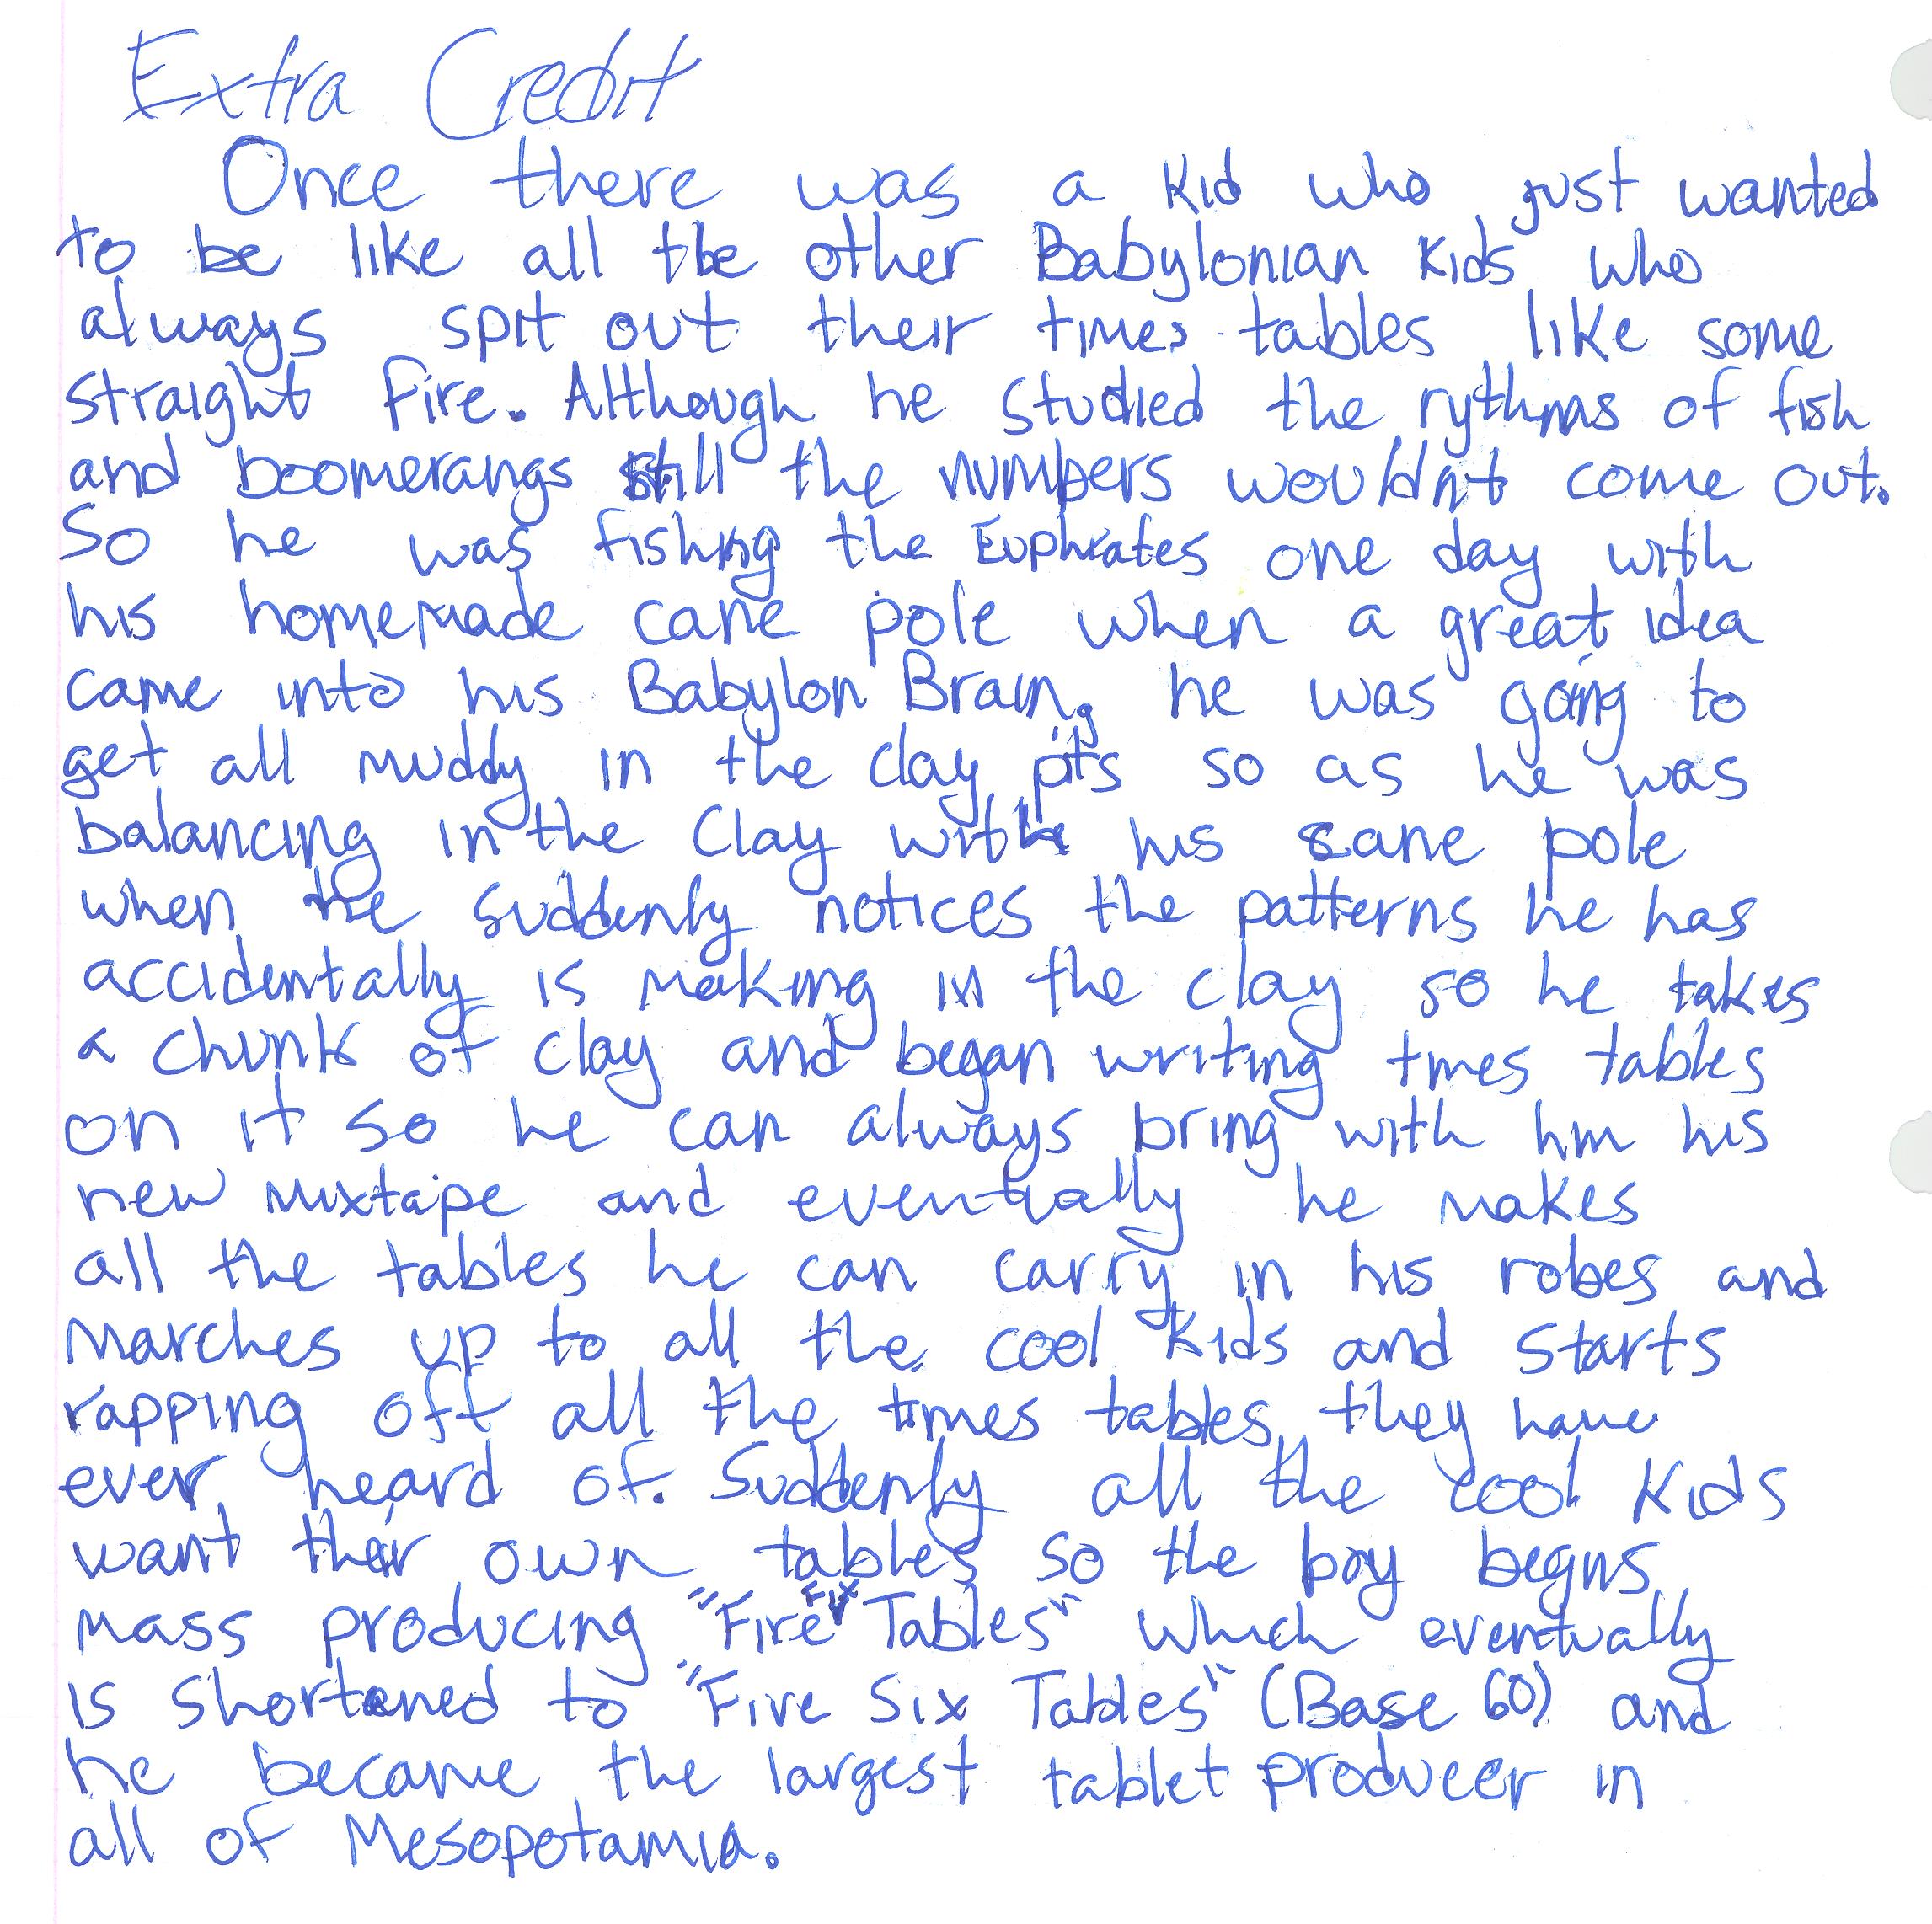 Extra Credit
Once there was a kid who just wanted
to be like all the other Babylonian kids who
always spit out their times tables like some
straight fire. Although he studied the rythms of fish
and boomerangs still the numbers wouldn't come out.
So he was fishing the Euphrates one day with
his homemade cane pole when a great idea
came into his Babylon Brain, he was going to
get all muddy in the clay pits so as he was
balancing in the clay with his cane pole
when he suddenly notices the patterns he has
accidentally is making in the clay so he takes
a chunk of clay and began writing times tables
on it so he can always bring with him his
new mixtape and eventually he makes
all the tables he can carry in his robes and
marches up to all the cool kids and starts
rapping off all the times tables they have
ever heard of. Suddenly all the cool kids
want their own tables so the boy begins
mass producing "Fire Fix Tables" which eventually
is shortened to "Five Six Tables" (Base 60) and
he became the largest tablet producer in
all of Mesopotamia.